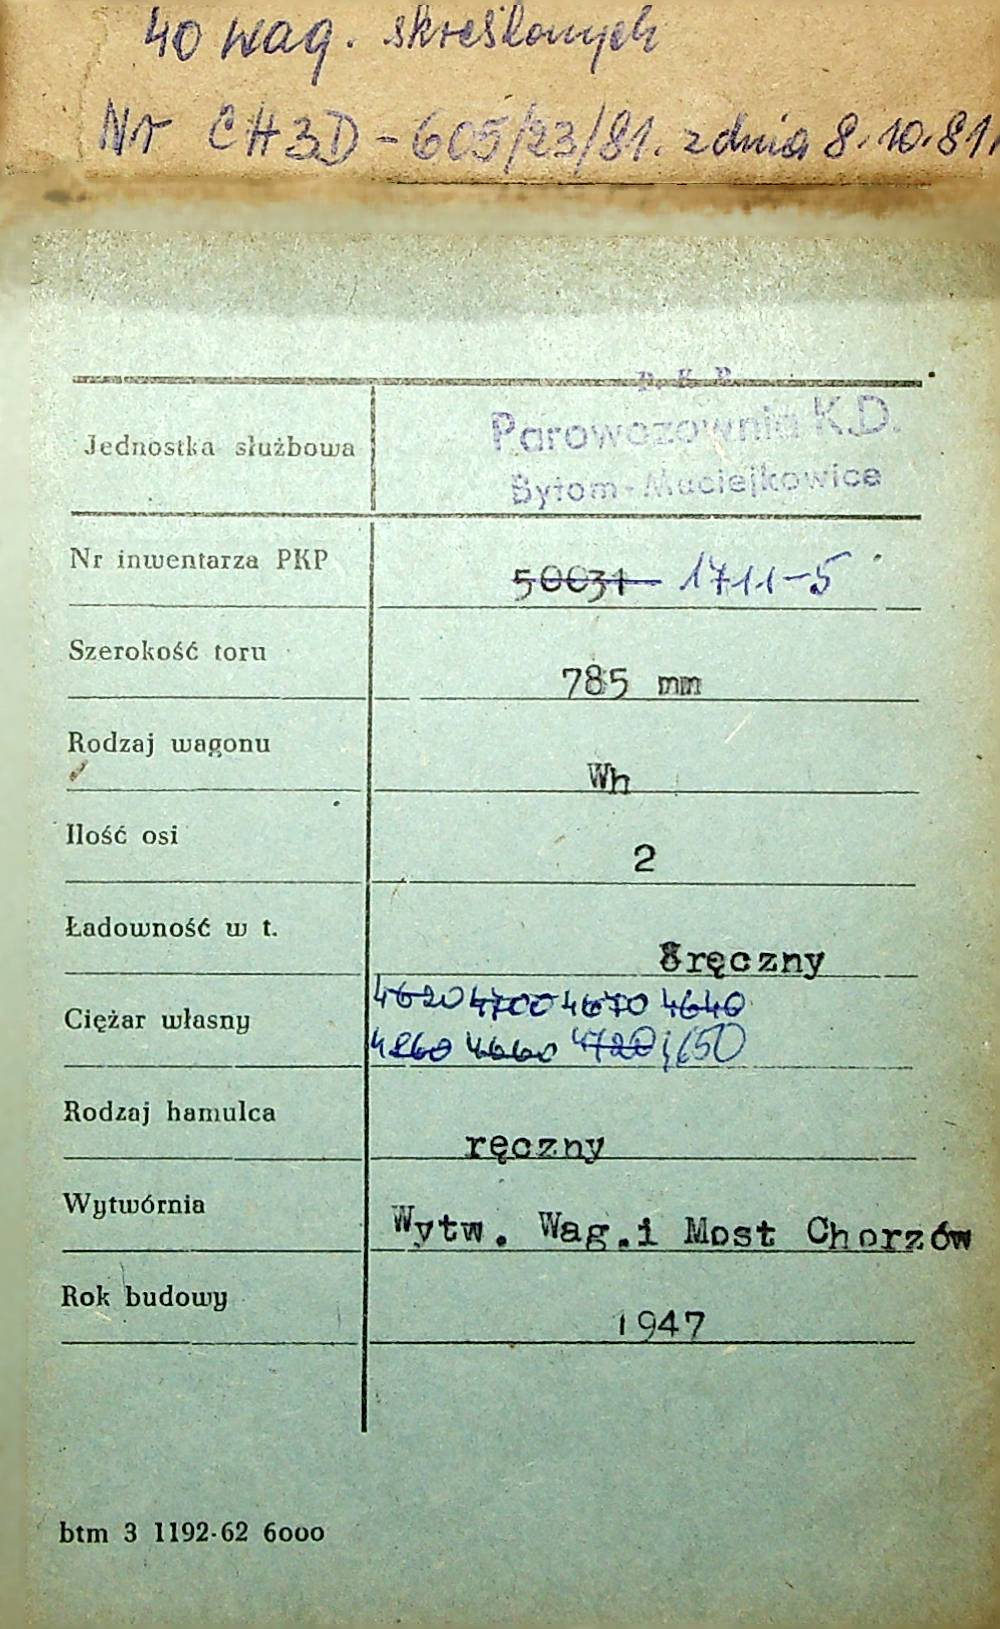 40 wag. skreślonych
Nr CH3D-605/23/81. z dnia 8.10.81.
P. K. P.
Jednostka służbowa
Parowozownia K.D.
Bytom-Maciejkowice
Nr inwentarza PKP
50031 1711-5
Szerokość toru
785 mm
Rodzaj wagonu
Wh
Ilość osi
2
Ładowność w t.
8ręczny
Ciężar własny
4620 4700 4670 4640
4660 4720 650
Rodzaj hamulca
ręczny
Wytwórnia
Wytw. Wag.i Most Chorzów
Rok budowy
1947
btm 3 1192-62 6000